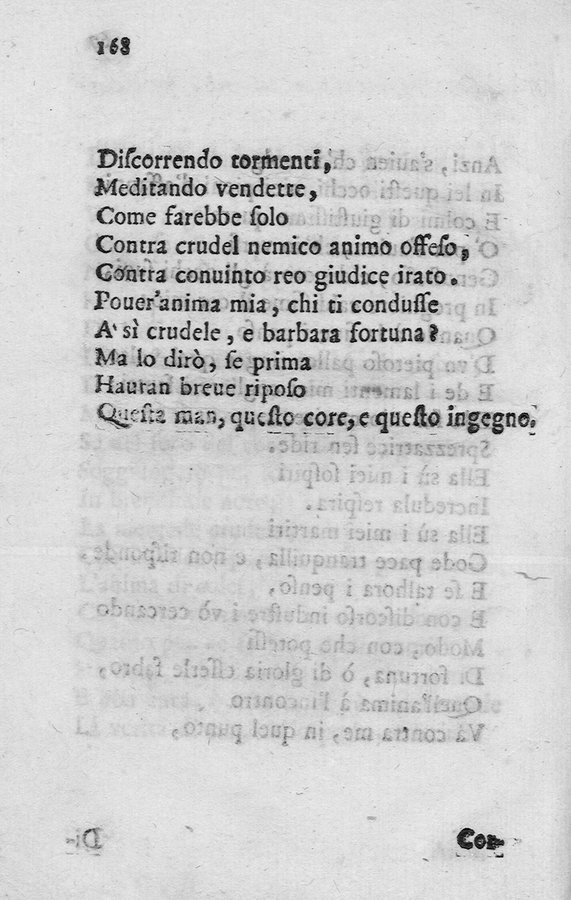 168
Diſcorrendo tormenti,
Meditando vendette,
Come farebbe ſolo
Contra crudel nemico animo offeſo,
Contra conuinto reo giudice irato.
Pouer'anima mia, chi ti conduſſe
A' sì crudele, e barbara fortuna?
Ma lo dirò, ſe prima
Hauran breue ripoſo
Queſta man, queſto core, e queſto ingegno.
Cor-